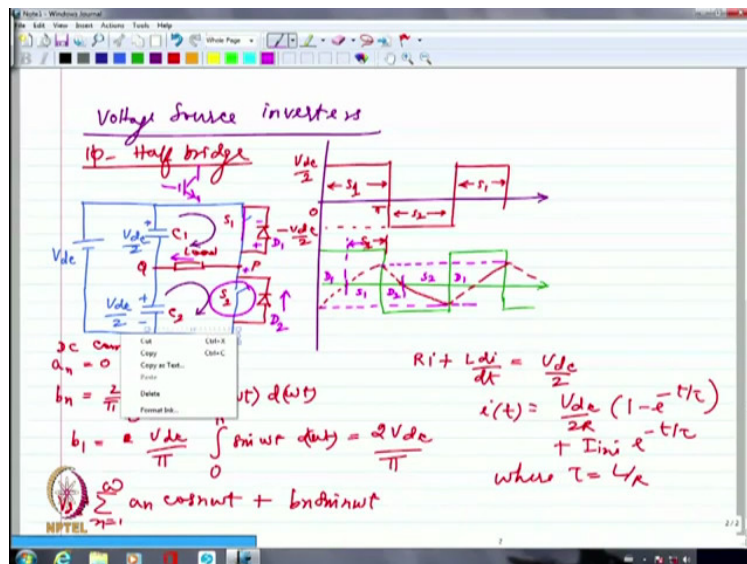 Note1 - Windows Journal
File Edit View Insert Actions Tools Help
Whole Page
B I
Voltage Source inverters
1φ- Half bridge
Vdc
Vdc/2
C1
Load
Q
P
Vdc/2
C2
S1
D1
S2
D2
Vdc/2
0
-Vdc/2
S1
π
S2
S1
S1
D1
S1
D2
S2
D1
DC
an = 0
bn = 2/π
ωt) d(ωt)
b1 = Vdc/π ∫ sin ωt d(ωt) = 2Vdc/π
π
0
∞
Σ an cosnωt + bnsinnωt
n=1
Cut Ctrl+X
Copy Ctrl+C
Copy as Text...
Paste
Delete
Format Ink...
Ri + Ldi/dt = Vdc/2
i(t) = Vdc/2R (1-e^-t/τ)
+ Iini e^-t/τ
where τ = L/R
NPTEL
2/2
2